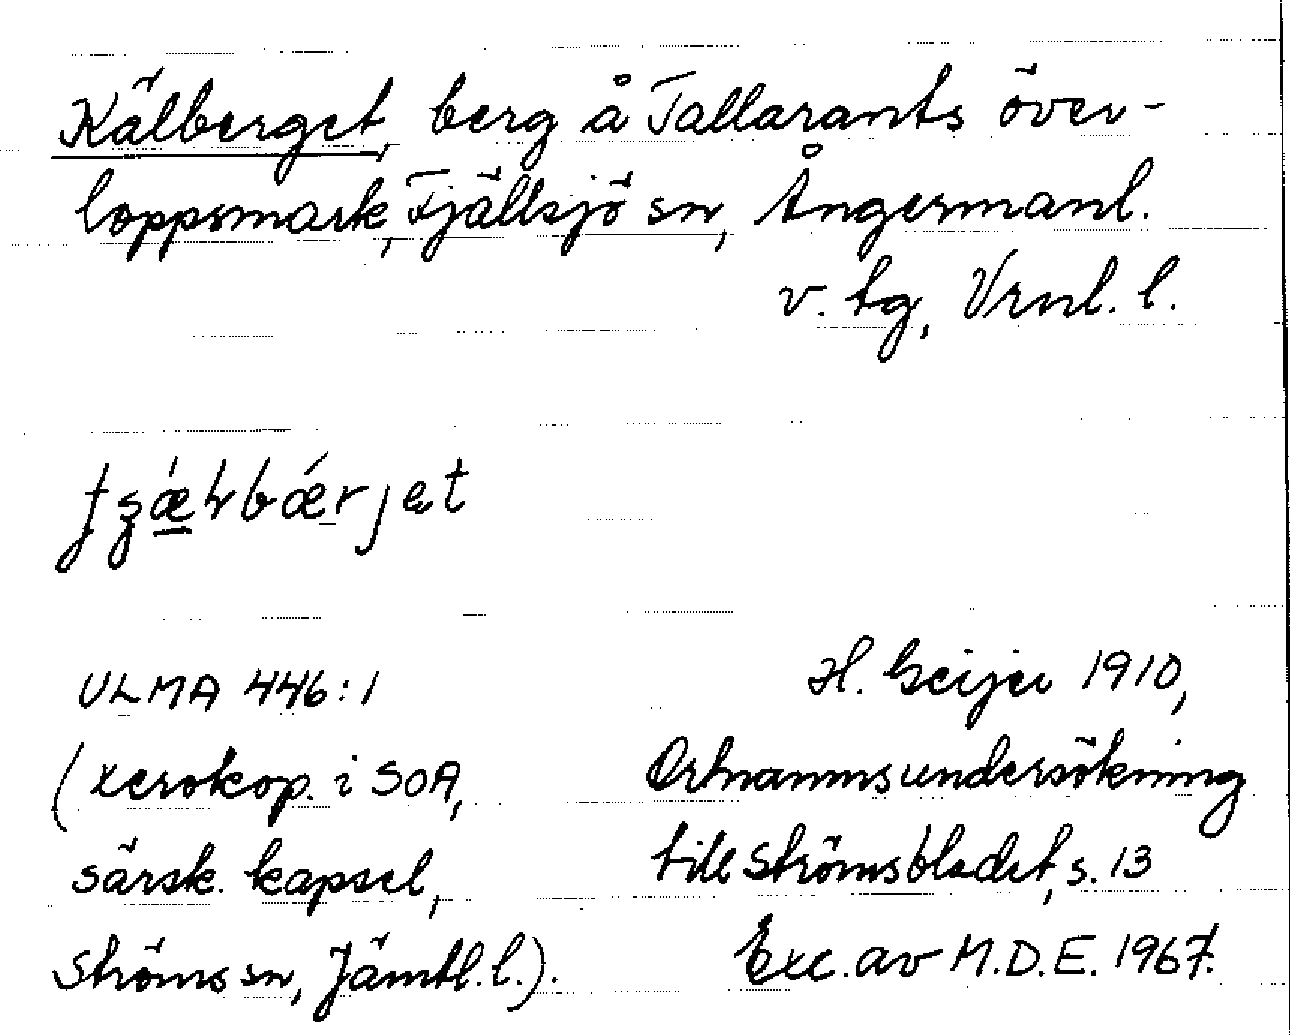 Kälberget, berg å Tallarants över-
loppsmark, Fjällsjö sn, Ångermanl.
v. tg, Vrnl. l.
ULMA 446:1
(xerokop. i SOA,
särsk. kapsel,
Ströms sn, Jämtl. l.).
H. Geijer 1910,
Ortnamnsundersökning
till Strömsbladet, s. 13
Exc. av M.D.E. 1967.